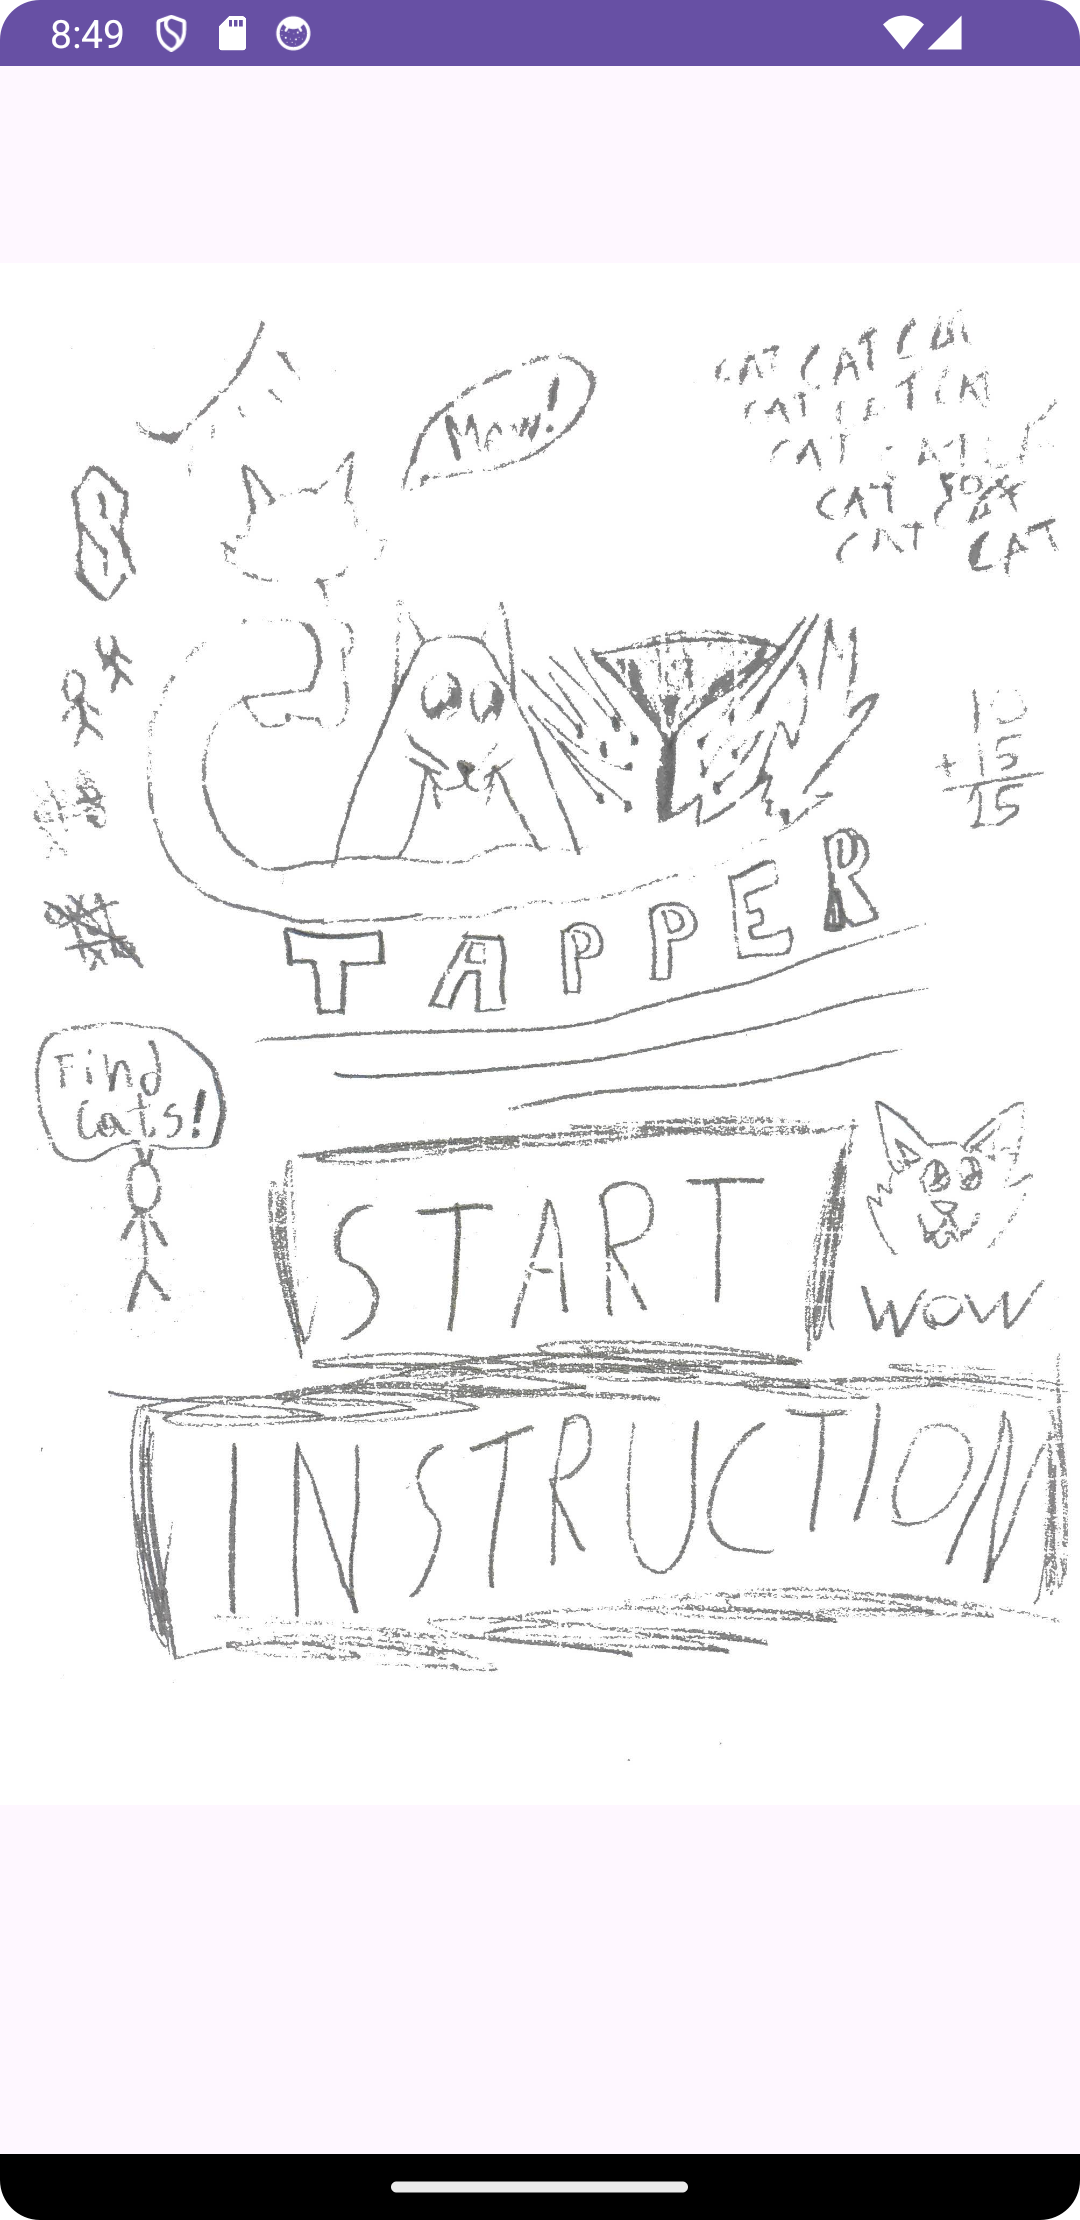 8:49
CAT CAT CAT
Mew!
CAT CAT CAT
CAT CAT
CAT
CAT CAT
10
+ 15
15
TAPPER
Find
Cats!
START
WOW
INSTRUCTION